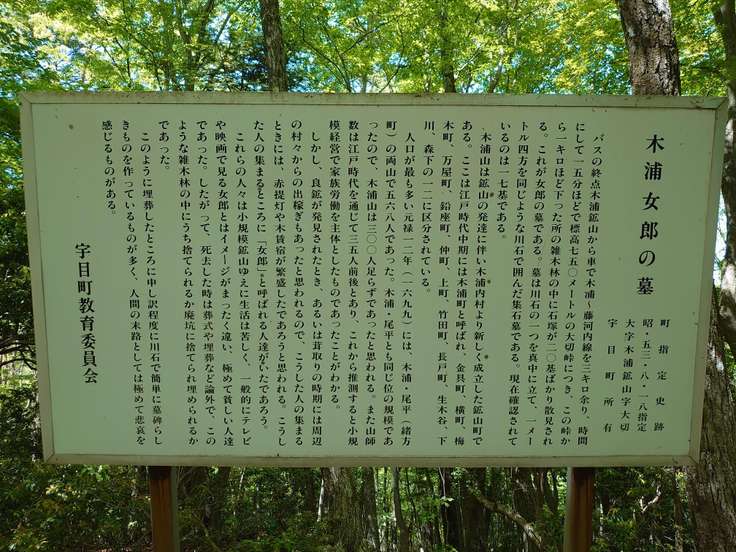 木浦女郎の墓
町指定史跡
昭・五三・八・一八指定
大字木浦鉱山字大切
宇目町所有
バスの終点木浦鉱山から車で木浦~藤河内線を三キロ余り、時間
にして一五分ほどで標高七五〇メートルの大切峠につき、この峠か
ら一キロほど下った所の雑木林の中に石塚が二〇基ばかり散見され
る。これが女郎の墓である。墓は川石の一つを真中に立て、一メー
トル四方を同じような川石で囲んだ集石墓である。現在確認されて
いるのは一七基である。
木浦山は鉱山の発達に伴い木浦内村より新しく成立した鉱山町で
ある。ここは江戸時代中期には木浦町と呼ばれ、金具町、横町、梅
木町、万屋町、鉛座町、仲町、上町、竹田町、長戸町、生木谷、下
川、森下の一二に区分されている。
人口が最も多い元禄一二年(一六九九)には、木浦・尾平(緒方
町)の両山で五六八人であった。木浦・尾平とも同じ位の規模であ
ったので、木浦山は三〇〇人足らずであったと思われる。また山師
数は江戸時代を通じて三五人前後とあり、これから推測すると小規
模経営で家族労働を主体としたものであったことがわかる。
しかし、良鉱が発見されたとき、あるいは茸取りの時期には周辺
の村々からの出稼ぎもあったと思われるので、こうした人の集まる
ときには、赤提灯や木賃宿が繁盛したであろうと思われる。こうし
た人の集まるところに「女郎」と呼ばれる人達がいたであろう。
これらの人々は小規模鉱山ゆえに生活は苦しく、一般的にテレビ
や映画で見る女郎とはイメージがまったく違い、極めて貧しい人達
であった。したがって、死去した時は葬式や埋葬など論外で、この
ような雑木林の中にうち捨てられるか廃坑に捨てられ埋められるか
であった。
このように埋葬したところに申し訳程度に川石で簡単に墓碑らし
きものを作っているものが多く、人間の末路としては極めて悲哀を
感じるものがある。
宇目町教育委員会